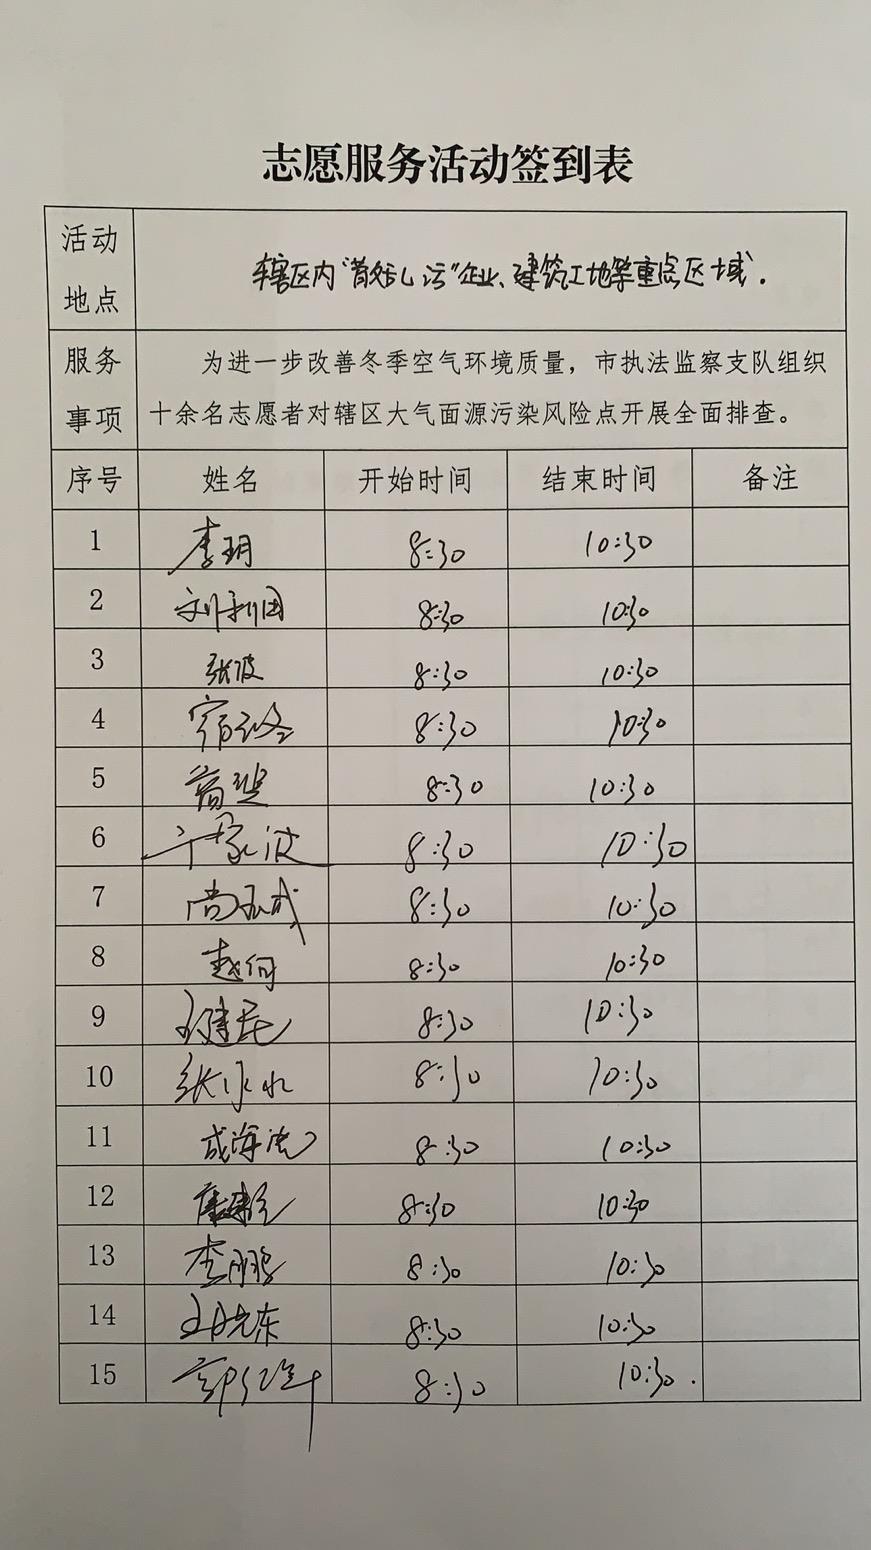 志愿服务活动签到表
活动
地点
辖区内“散乱污”企业、建筑工地等重点区域.
服务
事项
为进一步改善冬季空气环境质量，市执法监察支队组织
十余名志愿者对辖区大气面源污染风险点开展全面排查。
序号 姓名 开始时间 结束时间 备注
1 李玥 8:30 10:30
2 刘利国 8:30 10:30
3 张波 8:30 10:30
4 8:30 10:30
5 8:30 10:30
6 8:30 10:30
7 8:30 10:30
8 赵何 8:30 10:30
9 王建民 8:30 10:30
10 8:30 10:30
11 8:30 10:30
12 8:30 10:30
13 李鹏 8:30 10:30
14 王晓东 8:30 10:30
15 8:30 10:30.